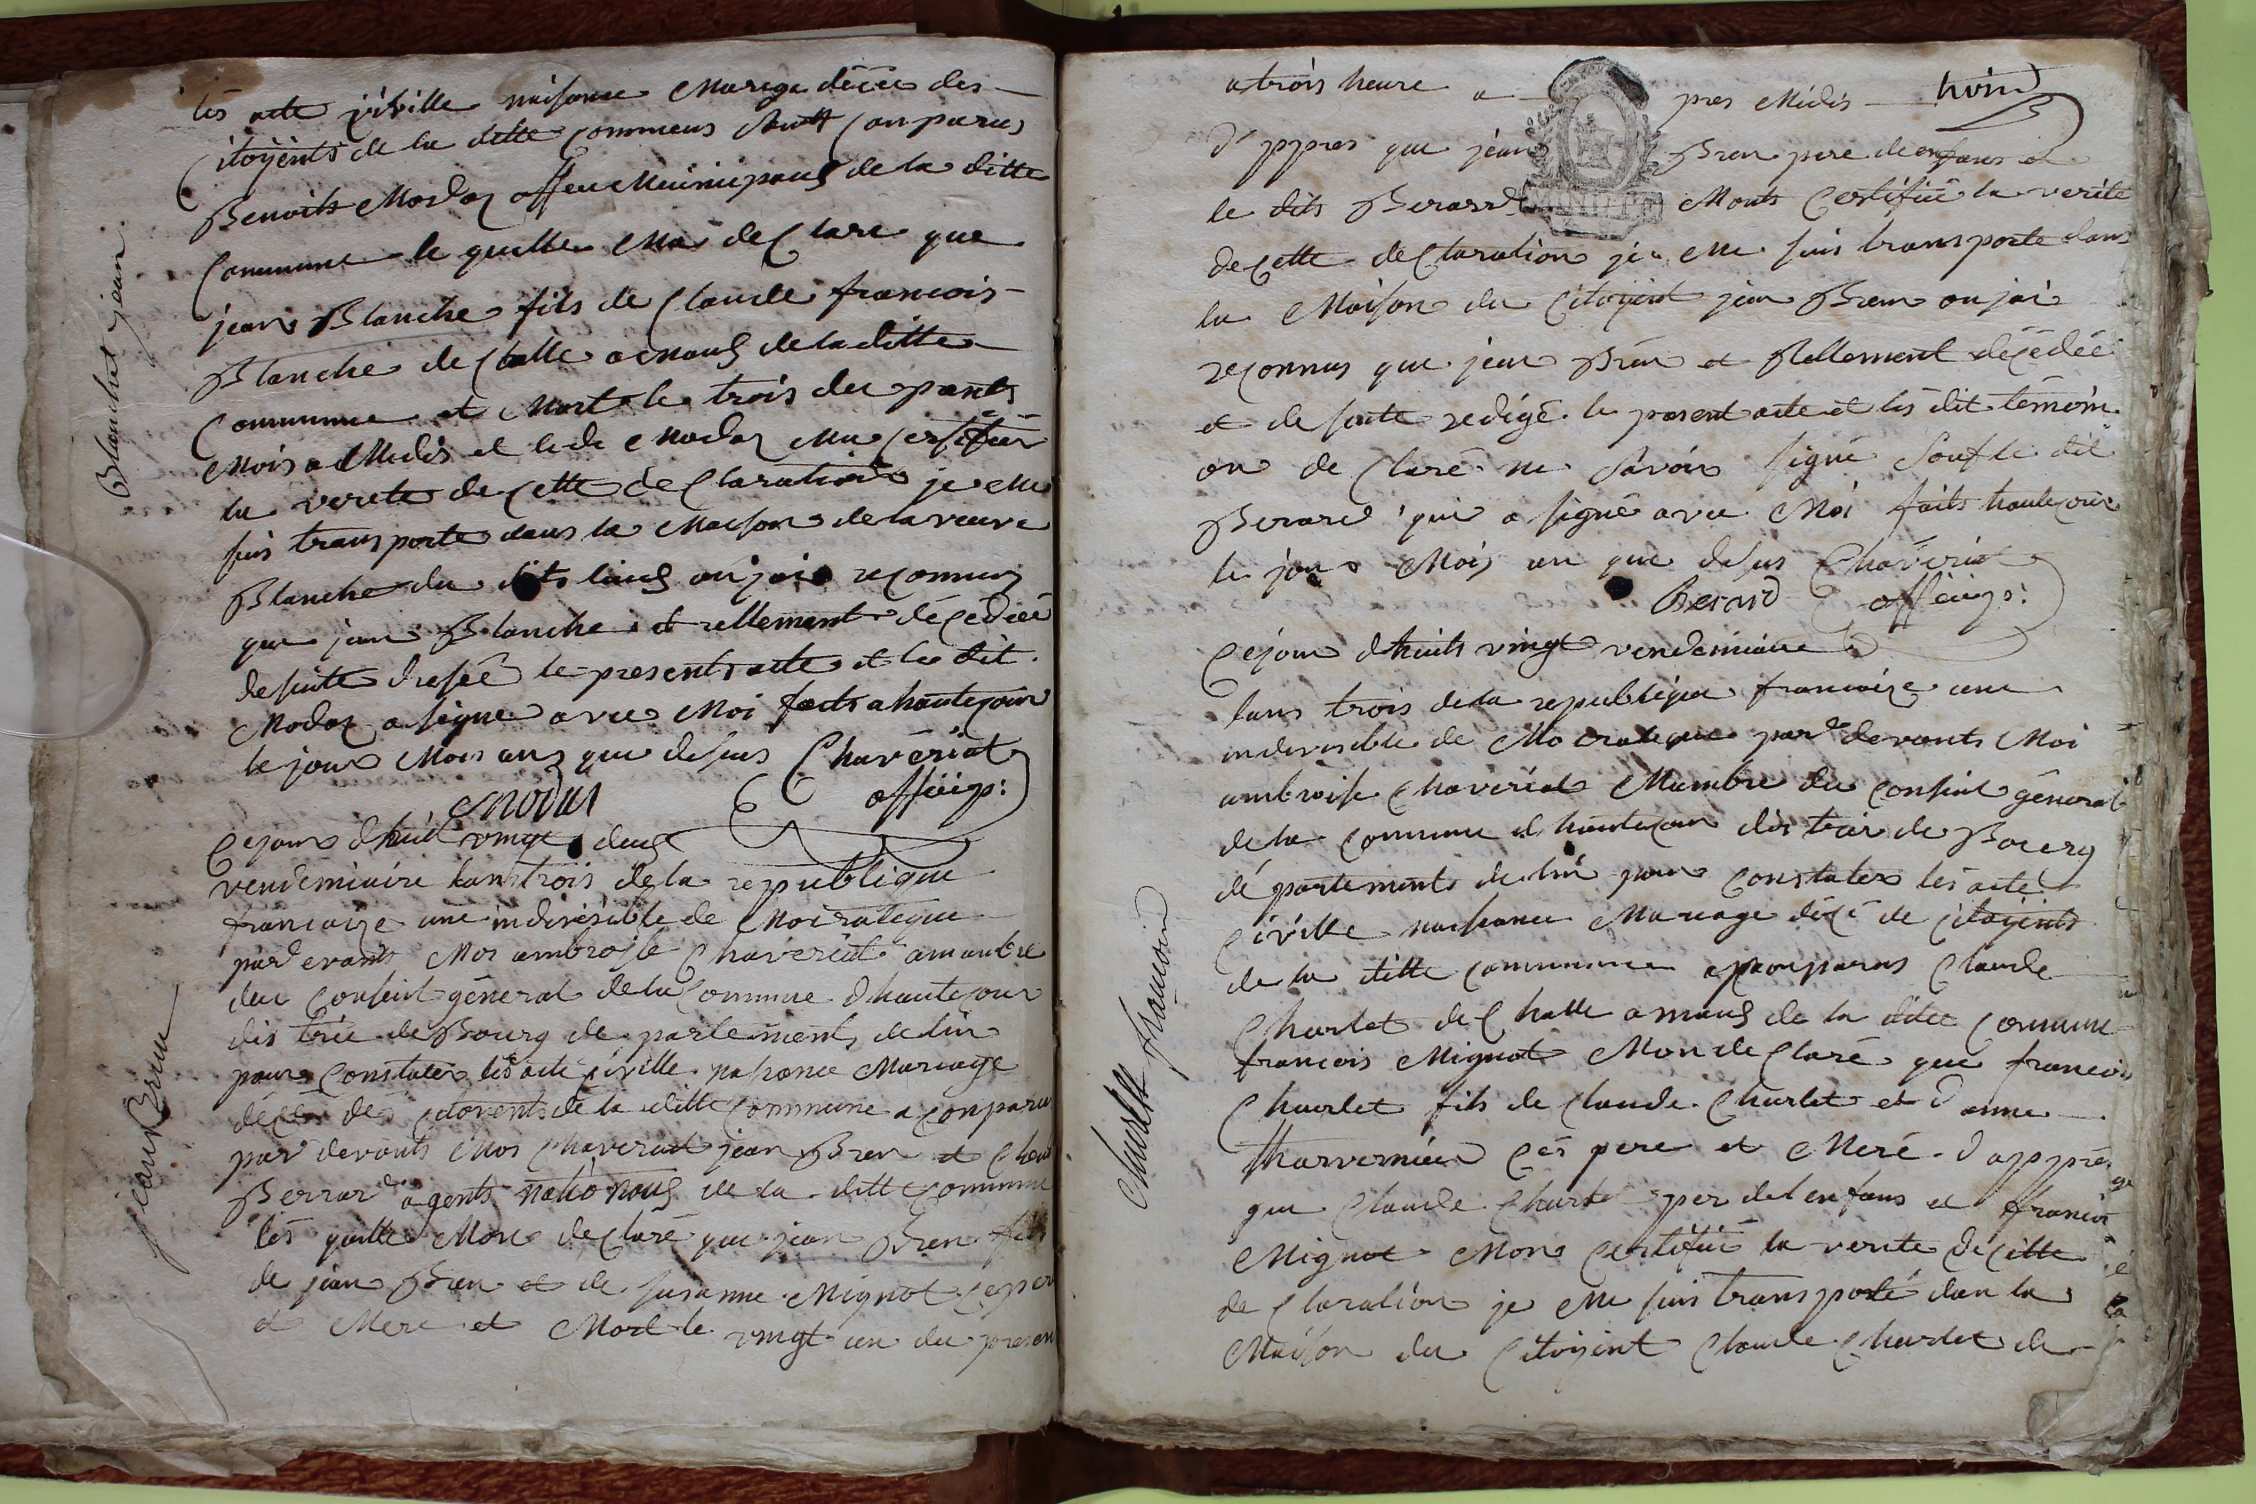 les acte çiville naisance Mariage décee des
Citoÿents de la ditte commeus Auott Conparus
Benoits Modaz officu Meinicipaus de la ditte
Commune le quelle Ma deClare que
jean Blanche fils de Claude francois
Blanche de Challe amaus de la ditte
Commune et Mort le trois du pants
Mois a Midis et ledi Modaz Ma Certifiér
la verete de Cette deClaration je me
suis transporte dans la Maison de la veuve
Blanche du dits lieus ou jai reconnus
que jean Blanche et rellement décédéé
de suite dresée le presents acte et le dit
Modaz a signe avec Moi faits a hautecour
le jour Mois ans que desus Chaveriat
Modas officiep:
Ce jour dhuit vingt deus
vendémiaire lans trois de la republique
francaize une indivisible deMoiratique
pardevants Moi ambroise Chaveriat mambre
du Conseint géneral de la Commune dhautecour
districe de Bourg departements de lin
pour Constater lés acte çiville nasance Mariage
décés dés citoyents de la ditte Commune a Conparu
par devants Moi Chaveriat jean Bren et Claud
Berrard agents nationaus de la ditte Commune
lés quelle Mon deClaré que jean Bren fils
de jean Bren et de susanne Mignot ce per
et Mere et Mort le vingt un du presen
Blanchet jean
jean Brun
a trois heure a pres Midis
d'yppres que jean Bren pere de enfans et
le dits Berard Monts Certifiée la verite
de Cette deClaration je me suis transporte dans
la Maison du Citoyint jean Bren ou jai
reconnus que jean Brén et Rellement décédéé
et de suite redigé le present acte et lés dit témoin
on deClaré ne Savoir signé Souf le dit
Berard qui a signé avec Moi faits hautecour
le jour Mois an que desus Chaveriat
Berard officiep:
Ce jour dhuits vingt vendémiaire
lans trois de la republique francaize une
indivisible deMocratique pardevants Moi
ambroise Chaveriat Mambre du Conseint géneral
de la Commune dhautecour districe de Bourg
départements de lin pour Constater lés acte
Civille naisance Mariage décé de citoyents
de la ditte commune a Conparus Claude
Charlet deChalle amaus de la ditte commune
francois Mignot Mon deClaré que francois
Charlet fils de Claude Charlet et d'anne
tharverniér Cés pere et Meré d'appprés
que Claude Charlet per del enfans et francoi
Mignot Mon Certifiée la verite de Citte
deClaration je me suis transporté dan la
Maison du Citoyint Claude Charlet de
Charlet francois